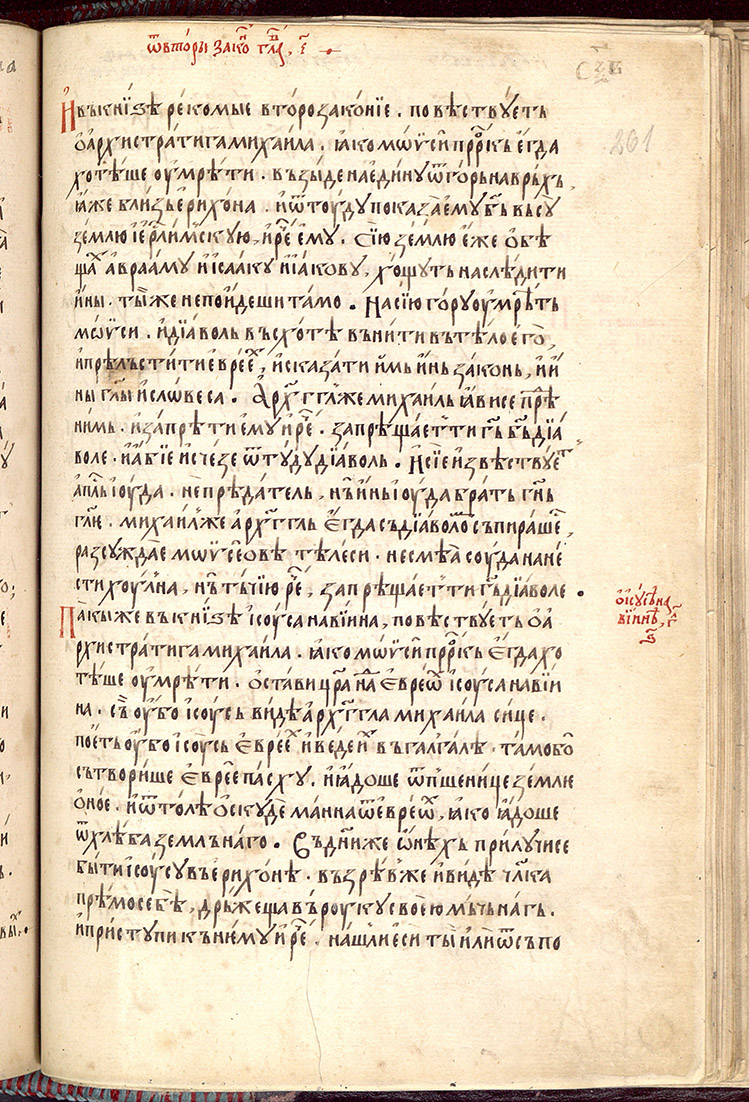 ѿ вторы зако гла, г҃
И въ книзѣ рекомые второзаконїе . повѣствуеть
о архистратига михаила . ꙗко мѡѵсїи прⷪ҇ркъ егда
хотѣше оумрѣти . възыде на едину ѿ горь на врьхъ,
ꙗже близь ерихона . и ѿтоуду показа ему б҃ъ вьсу
землю іерⷭ҇лимскую, и рⷱ҇е ему . Сїю землю еже обѣ
щаⷯ авраaму и ісааку и іакову, хощуть наслѣдити
ины . ты же не поидеши тамо . На сїю гору оумрѣть
мѡѵси . и дїаволь въсхотѣ вънити въ тѣло его,
и прѣльстити евреѐⷯ, и сказати имь инь законь, и и
ны гл҃ы и словеса . Арⷯгг҃лже михаиль ꙗви се прѣ
нимь . и запрѣти ему и рⷱ҇е . запрѣщаеть ти г҃ь б҃ъ дїа
воле . и абїе исчезе ѿтуду дїаволь . И сїе извѣствуеⷮ
апⷭ҇ль іоуда . не прѣдатель, нъ инь іоуда брать г҃нь
гл҃ю . михаилже арⷯгг҃ль егда съ дїаволоⷨ съпираше,
разсуждае мѡѵсеѡвѣ тѣлеси . не смѣа соуда нане
сти хоулна, нъ тъчїю рⷱ҇е, запрѣщаеть ти г҃ь дїаволе .
Пакы же въ книзѣ ісоуса навіина, повѣствуеть о а
рхистратига михаила . ꙗко мѡѵсїи прⷪ҇ркъ егда хо
тѣше оумрѣти . остави цр҃а на евреѡⷨ ісоуса навїи
на . съ оубо ісоусь видѣ арⷯгг҃ла михаила сице .
поеть оубо ісоусь евреѐⷯ и веде иⷯ въ галгалѣ . тамо бо
сътворише евреѐ пасху . и ꙗдоше ѿ пшенице землю
оное . и ѿтолѣ оскуде манна ѿ евреѡⷯ, ꙗко ꙗдоше
ѿ хлѣба землънаго . Съ дниже ѡнѣхъ прилучисе
быти ісоусу въ ерихонѣ . възрѣвже и видѣ чл҃ка
прѣмо себѣ, дрьжеща въ роуку своею мьчь нагь .
и приступи къ нему и рⷱ҇е . нашь ли еси ты или ѿ съпо
о ісусѣ на
вїинѣ, г҃
261